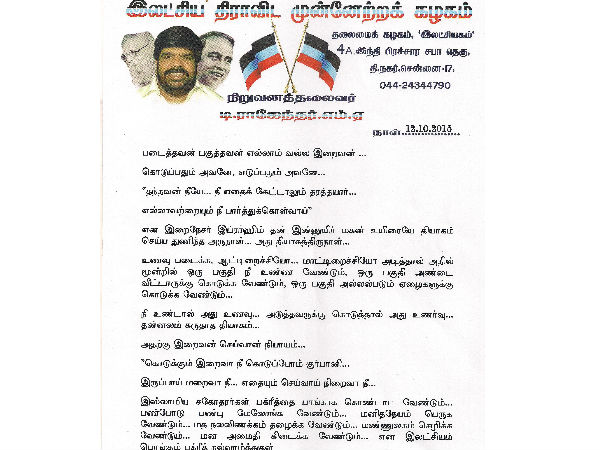 இலட்சிய திராவிட முன்னேற்றக் கழகம்
தலைமைக் கழகம், 'இலட்சியகம்'
4A, இந்தி பிரச்சார சபா தெரு,
தி.நகர், சென்னை-17.
044-24344790
நிறுவனத்தலைவர்
டி.ராஜேந்தர்.எம்.ஏ
நாள்...12.10.2013
படைத்தவன் பகுத்தவன் எல்லாம் வல்ல இறைவன் ...
கொடுப்பதும் அவனே, எடுப்பதும் அவனே...
"தந்தவன் நீயே... நீ எதைக் கேட்டாலும் தரத்தயார்...
எல்லாவற்றையும் நீ பார்த்துக்கொள்வாய்"
என இறைநேசர் இப்ராஹிம் தன் இன்னுயிர் மகன் உயிரையே தியாகம்
செய்ய துணிந்த அருநாள்... அது தியாகத்திருநாள்...
உணவு படைக்க, ஆட்டிறைச்சியோ... மாட்டிறைச்சியோ அடித்தால் அதில்
மூன்றில் ஒரு பகுதி நீ உண்ண வேண்டும், ஒரு பகுதி அண்டை
வீட்டாருக்கு கொடுக்க வேண்டும், ஒரு பகுதி அல்லல்படும் ஏழைகளுக்கு
கொடுக்க வேண்டும்...
நீ உண்டால் அது உணவு... அடுத்தவருக்கு கொடுத்தால் அது உணர்வு...
தன்னலம் கருதாத தியாகம்...
அதற்கு இறைவன் செய்வான் நியாயம்...
"கொடுக்கும் இறைவா நீ கொடுப்போம் குர்பானி...
இருப்பாய் மறைவா நீ... எதையும் செய்வாய் நிறைவா நீ...
இஸ்லாமிய சகோதரர்கள் பக்ரீத்தை பாங்காக கொண்டாட வேண்டும்...
பண்போடு பண்பு மேலோங்க வேண்டும்... மனிதநேயம் பெருக
வேண்டும்... மத நல்லிணக்கம் தழைக்க வேண்டும்... மண்ணுலகம் செழிக்க
வேண்டும்... மன அமைதி கிடைக்க வேண்டும்... என இலட்சியம்
பொங்கும் பக்ரீத் நல்வாழ்த்துகள்